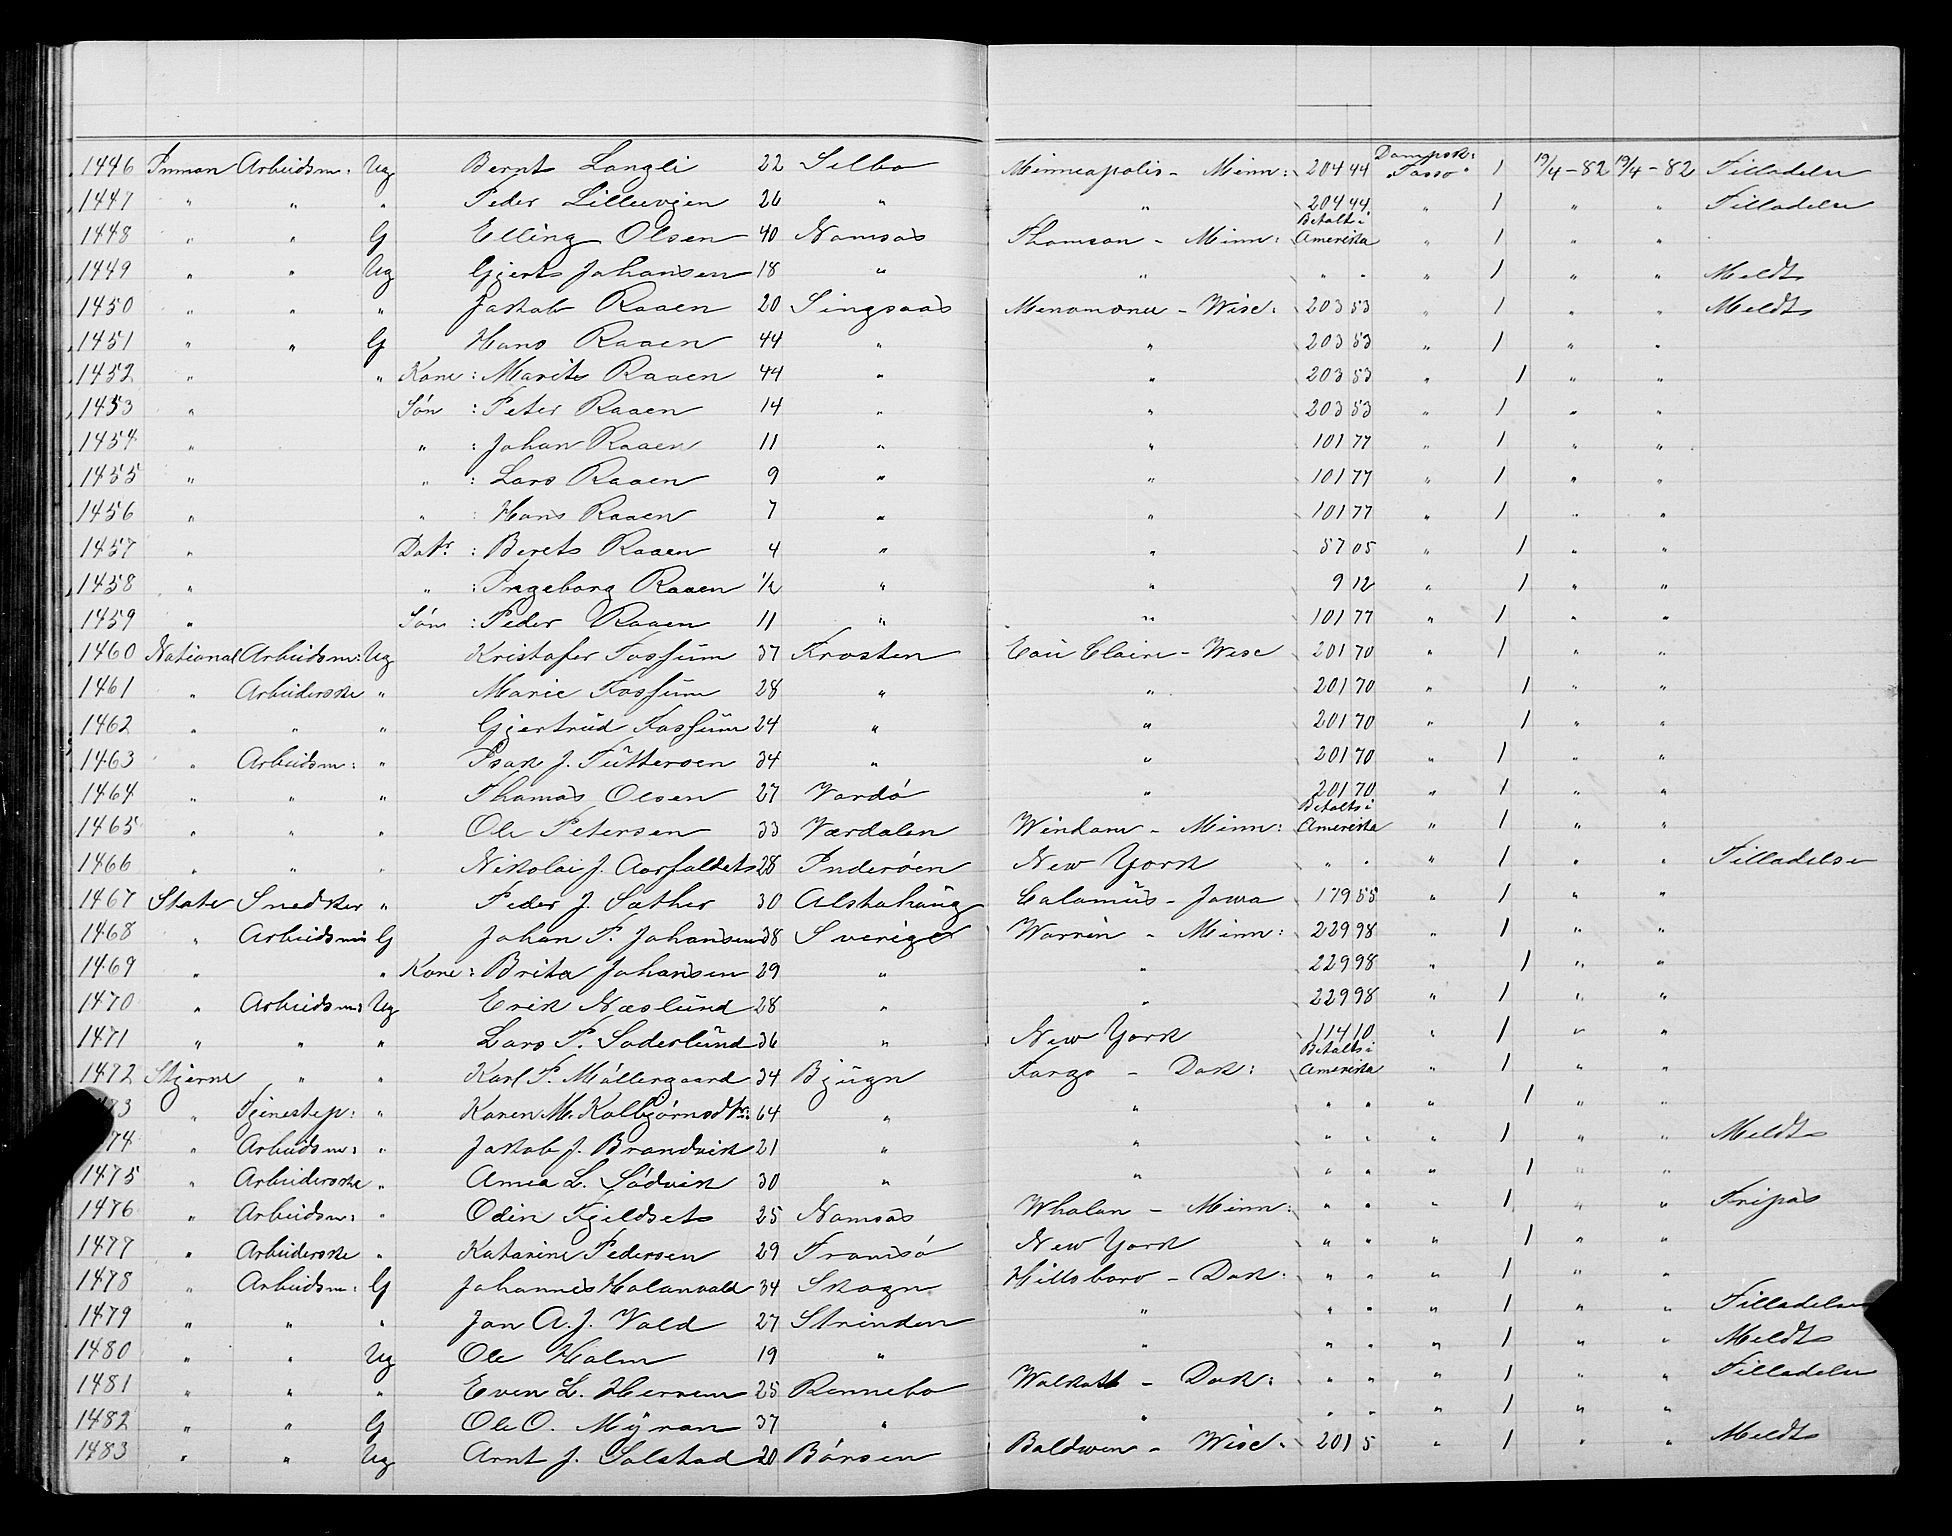 1446 Inman Arbeidsm: Ug Bernt Langli 22 Selbo Minneapolis - Minn: 204 44 Dampsk: "Tasso" 1 19/4 - 82 19/4 - 82 Tilladelse
1447 " " " Peder Lillevjen 26 " " 204 44 " 1 " " Tilladelse
1448 " " G Elling Olsen 40 Namsos Thomson - Minn: Betalt i Amerika " 1 " "
1449 " " Ug Gjert Johansen 18 " " " " " 1 " " Meldt
1450 " " " Jakob Raaen 20 Singsaas Menomonee - Wisc: 203 53 " 1 " " Meldt
1451 " " G Hans Raaen 44 " " 203 53 " 1 " "
1452 " " Kone : Marit Raaen 44 " " 203 53 " 1 " "
1453 " Søn : Peter Raaen 14 " " 203 53 " 1 " "
1454 " " : Johan Raaen 11 " " 101 77 " 1 " "
1455 " " : Lars Raaen 9 " " 101 77 " 1 " "
1456 " " : Hans Raaen 7 " " 101 77 " 1 " "
1457 " Datr : Beret Raaen 4 " " 57 05 " 1 " "
1458 " " : Ingeborg Raaen 1/2 " " 9 12 " 1 " "
1459 " Søn : Peder Raaen 11 " " 101 77 " 1 " "
1460 National Arbeidsm: Ug Kristofer Fossum 37 Frosten Eau Claire - Wisc 201 70 " 1 " "
1461 " Arbeiderske " Marie Fossum 28 " " 201 70 " 1 " "
1462 " " " Gjertrud Fossum 24 " " 201 70 " 1 " "
1463 " Arbeidsm: " Isak J. Tuttersen 34 " " 201 70 " 1 " "
1464 " " " Thomas Olsen 27 Vardø " 201 70 " 1 " "
1465 " " " Ole Petersen 33 Værdalen Windom - Minn: Betalt i Amerika " 1 " "
1466 " " " Nikolai J. 28 Inderøen New York " " " 1 " " Tilladelse
1467 State Snedker " Peder J. Sæther 30 Alstahaug Calamus - Jowa 179 55 " 1 " "
1468 " Arbeidsm G Johan P. Johansen 38 Sverige Warren - Minn: 229 98 " 1 " "
1469 " " Kone : Brita Johansen 29 " " 229 98 " 1 " "
1470 " Arbeidsm: Ug Erik Næslund 28 " " 229 98 " 1 " "
1471 " " " Lars P. Soderlund 36 " New York 114 10 " 1 " "
1472 Stjerne " " Karl P. Møllergaard 34 Bjugn Fargo - Dak: Betalt i Amerika " 1 " "
73 " Tjenestep: " Karen M. Kolbjørnsdtr: 64 " " " " " 1 " "
74 " Arbeidsm: " Jakob J. Brandvik 21 " " " " " 1 " " Meldt
1475 " Arbeiderske " L. Sødvik 30 " " " " " 1 " "
1476 " Arbeidsm: " Odin Fjeldset 25 Namsos Whalan - Minn: " " " 1 " " Fripas
1477 " Arbeiderske " Katarine Pedersen 29 Tromsø New York " " " 1 " "
1478 " Arbeidsm: G Johannes Holanvald 34 Skogn Hillsboro - Dak: " " " 1 " "
1479 " " " Jon A. J. Vold 27 Strinden " " " " 1 " " Tilladelse
1480 " " Ug Ole Holm 19 " " " " " 1 " " Meldt
1481 " " " Even L. Herrem 25 Rennebo Walkatt - Dak: " " " 1 " " Tilladelse
1482 " " G Ole O. Myran 37 " " " " " 1 " "
1483 " " Ug Arnt J. Solstad 20 Børsen Baldwen - Wisc. 201 5 " 1 " " Meldt